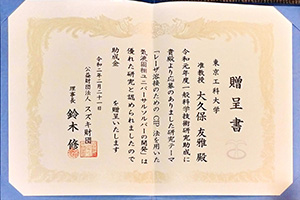 贈呈書
東京工科大学
准教授 大久保 友雅 殿
令和元年度一般科学技術研究助成に
貴殿より応募のありました研究テーマ
「レーザ溶接のための 法を用いた
気液固相ユニバーサルソルバーの開発」は
優れた研究と認められましたので
助成金 を贈呈いたします
令和二年二月二十一日
公益財団法人 スズキ財団
理事長 鈴木 修